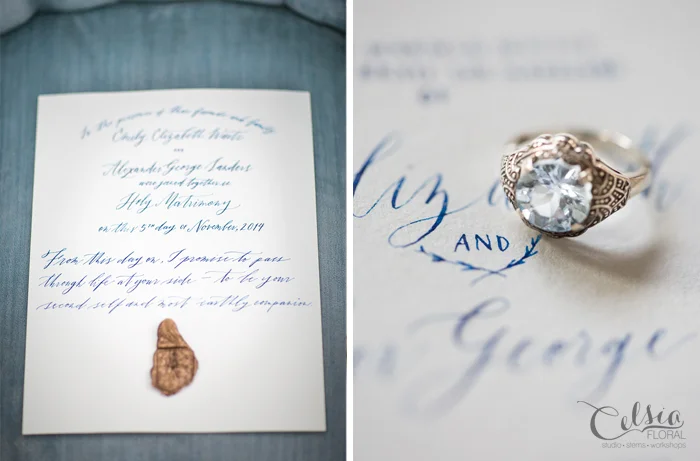 In the presence of their friends and family
Emily Elizabeth Waite
and
Alexander George Sanders
were joined together in
Holy Matrimony
on this 5th day of November, 2014
From this day on, I promise to pass
through life at your side — to be your
second self and most earthly companion.
Eliza
AND
George
Celsia
FLORAL
studio • stems • workshops